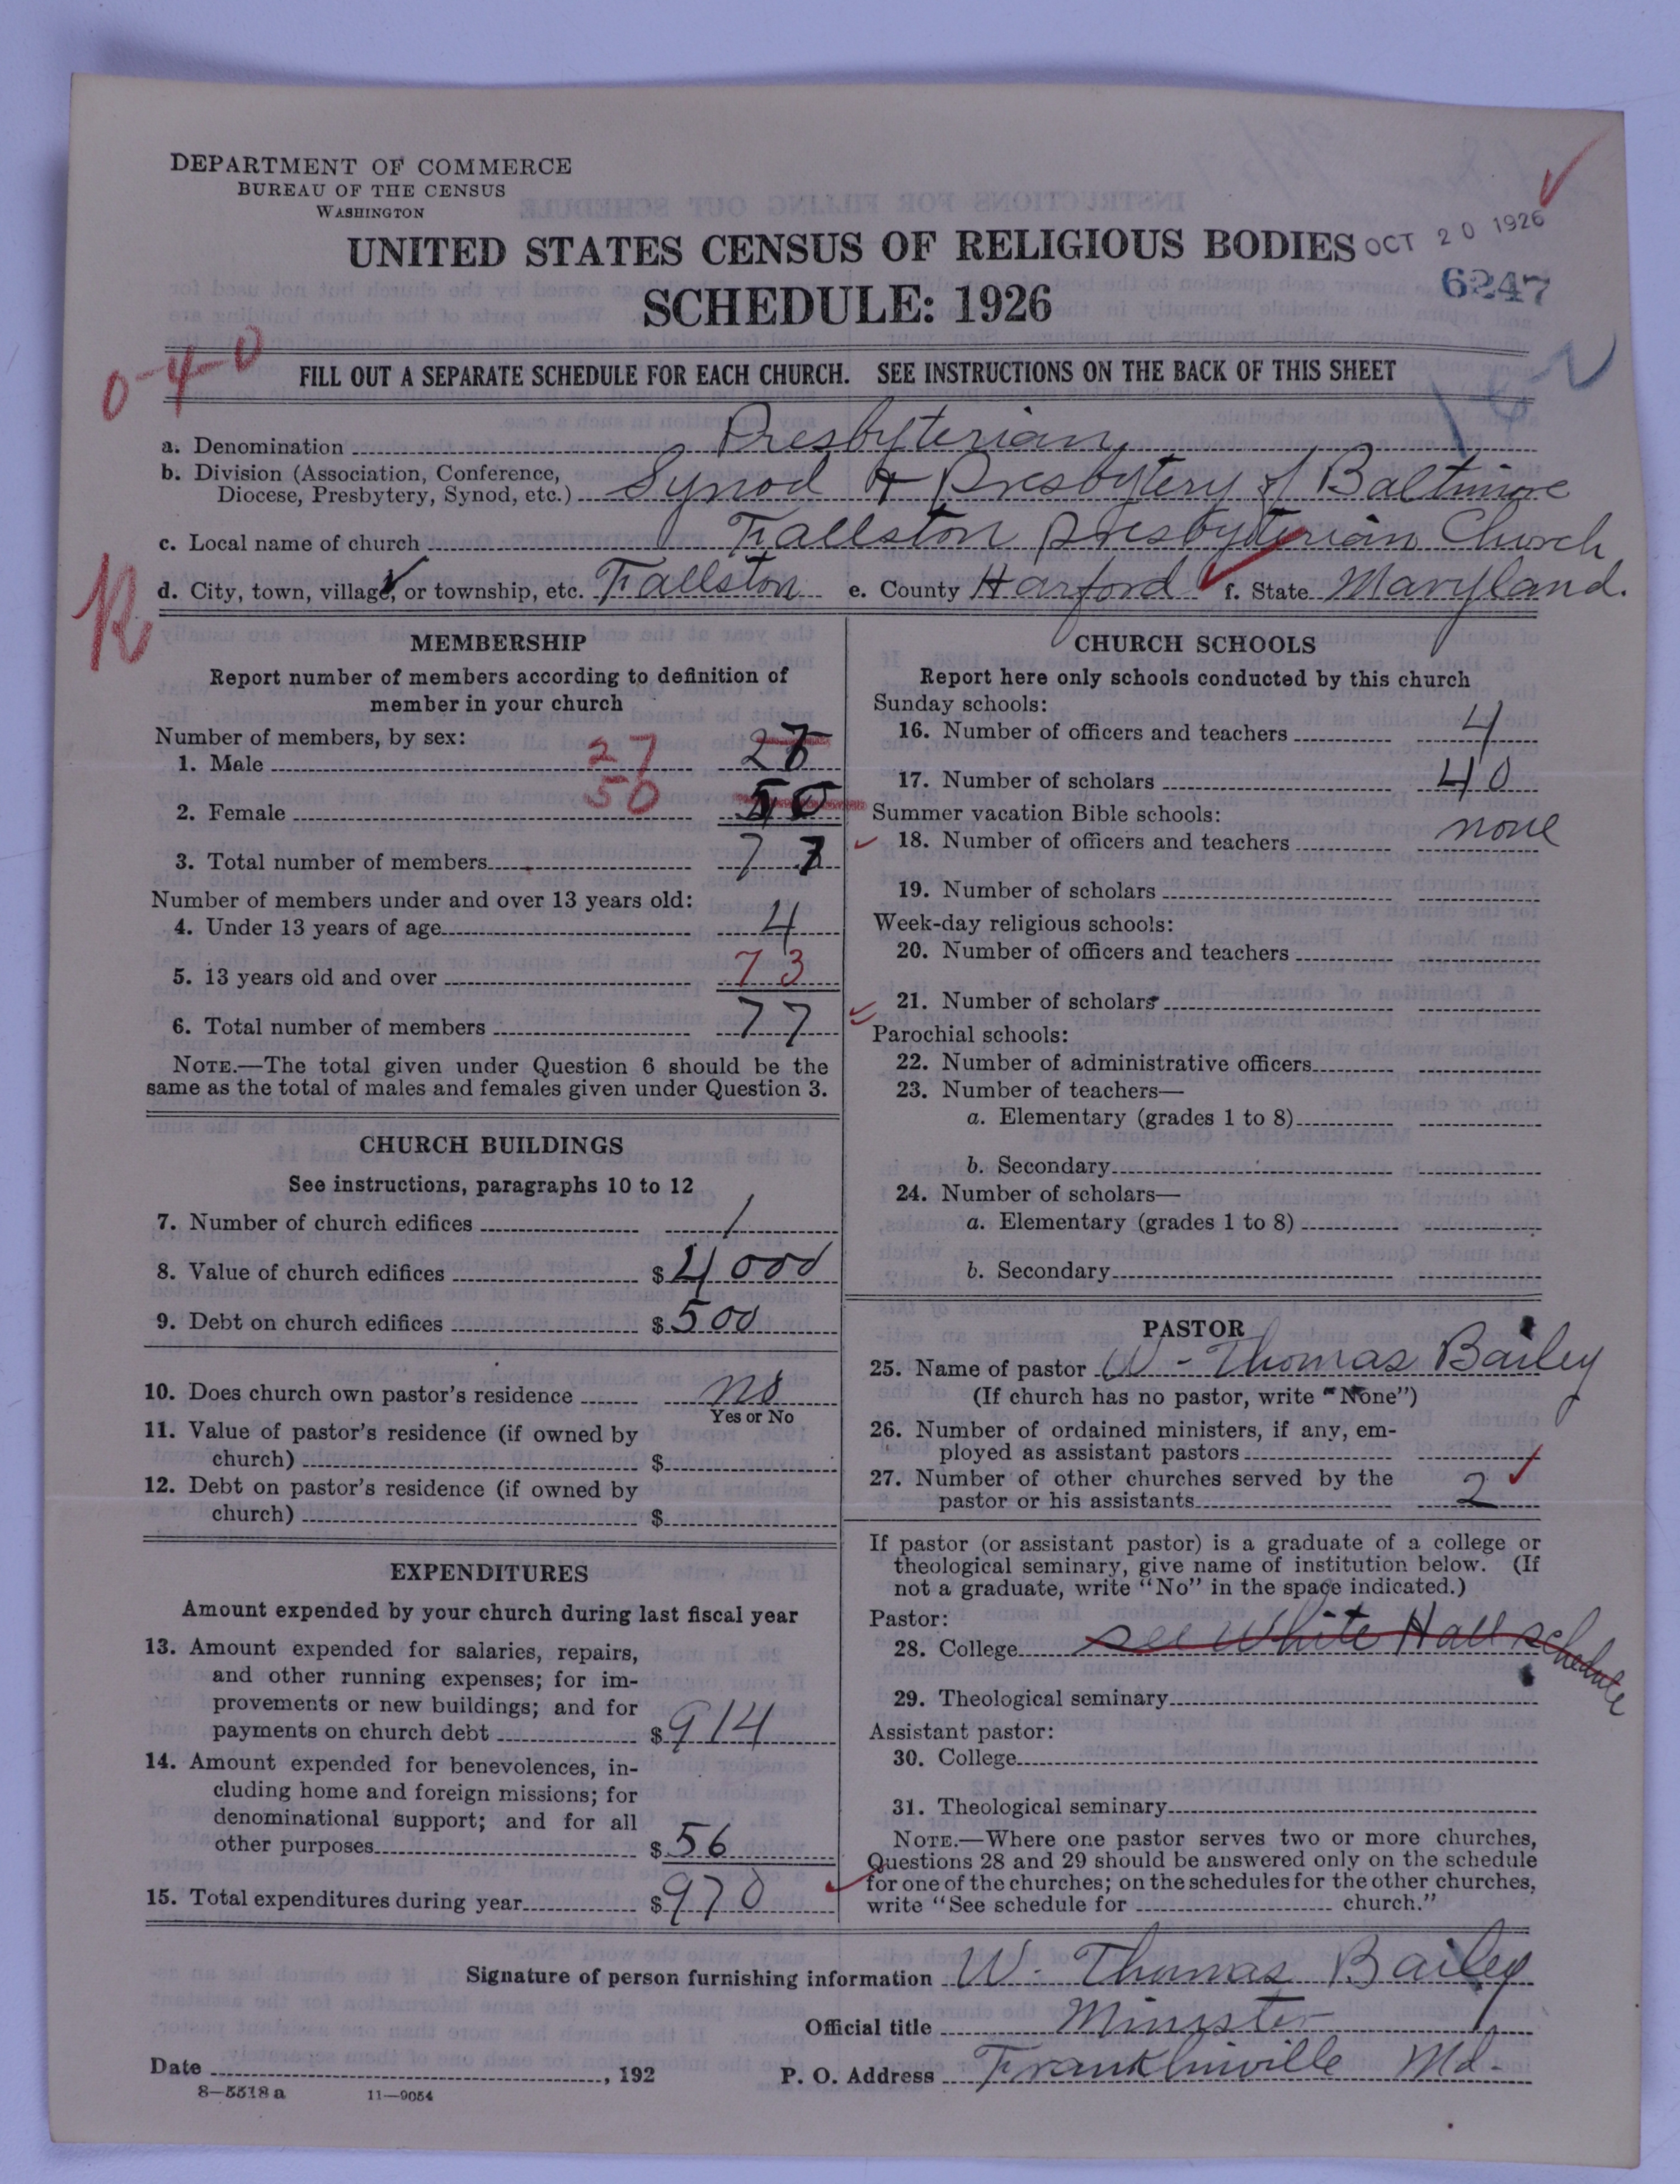 DEPARTMENT OF COMMERCE
BUREAU OF THE CENSUS
WASHINGTON
UNITED STATES CENSUS OF RELIGIOUS BODIES
OCT 20 1926
SCHEDULE: 1926
6247
0-4-0
FILL OUT A SEPARATE SCHEDULE FOR EACH CHURCH. SEE INSTRUCTIONS ON THE BACK OF THIS SHEET
a. Denomination Presbyterian
b. Division (Association, Conference,
Diocese, Presbytery, Synod, etc.) Synod & Presbytery of Baltimore
c. Local name of church Fallston Presbyterian Church
d. City, town, village, or township, etc. Fallston e. County Harford f. State Maryland.
R
MEMBERSHIP
Report number of members according to definition of
member in your church
Number of members, by sex:
1. Male 27
2. Female 50
3. Total number of members 77
Number of members under and over 13 years old:
4. Under 13 years of age 4
5. 13 years old and over 73
6. Total number of members 77
NOTE.—The total given under Question 6 should be the
same as the total of males and females given under Question 3.
CHURCH BUILDINGS
See instructions, paragraphs 10 to 12
7. Number of church edifices 1
8. Value of church edifices $4000
9. Debt on church edifices $500
10. Does church own pastor's residence no
Yes or No
11. Value of pastor's residence (if owned by
church) $
12. Debt on pastor's residence (if owned by
church) $
EXPENDITURES
Amount expended by your church during last fiscal year
13. Amount expended for salaries, repairs,
and other running expenses; for im-
provements or new buildings; and for
payments on church debt $914
14. Amount expended for benevolences, in-
cluding home and foreign missions; for
denominational support; and for all
other purposes $56
15. Total expenditures during year $970
CHURCH SCHOOLS
Report here only schools conducted by this church
Sunday schools:
16. Number of officers and teachers 4
17. Number of scholars 40
Summer vacation Bible schools:
18. Number of officers and teachers none
19. Number of scholars
Week-day religious schools:
20. Number of officers and teachers
21. Number of scholars
Parochial schools:
22. Number of administrative officers
23. Number of teachers—
a. Elementary (grades 1 to 8)
b. Secondary
24. Number of scholars—
a. Elementary (grades 1 to 8)
b. Secondary
PASTOR
25. Name of pastor W. Thomas Bailey
(If church has no pastor, write "None")
26. Number of ordained ministers, if any, em-
ployed as assistant pastors
27. Number of other churches served by the
pastor or his assistants 2
If pastor (or assistant pastor) is a graduate of a college or
theological seminary, give name of institution below. (If
not a graduate, write "No" in the space indicated.)
Pastor:
28. College see White Hall schedule
29. Theological seminary
Assistant pastor:
30. College
31. Theological seminary
NOTE.—Where one pastor serves two or more churches,
Questions 28 and 29 should be answered only on the schedule
for one of the churches; on the schedules for the other churches,
write "See schedule for church."
Signature of person furnishing information W. Thomas Bailey
Official title Minister
Date , 192
P. O. Address Franklinville Md.
8—5518 a 11—9054